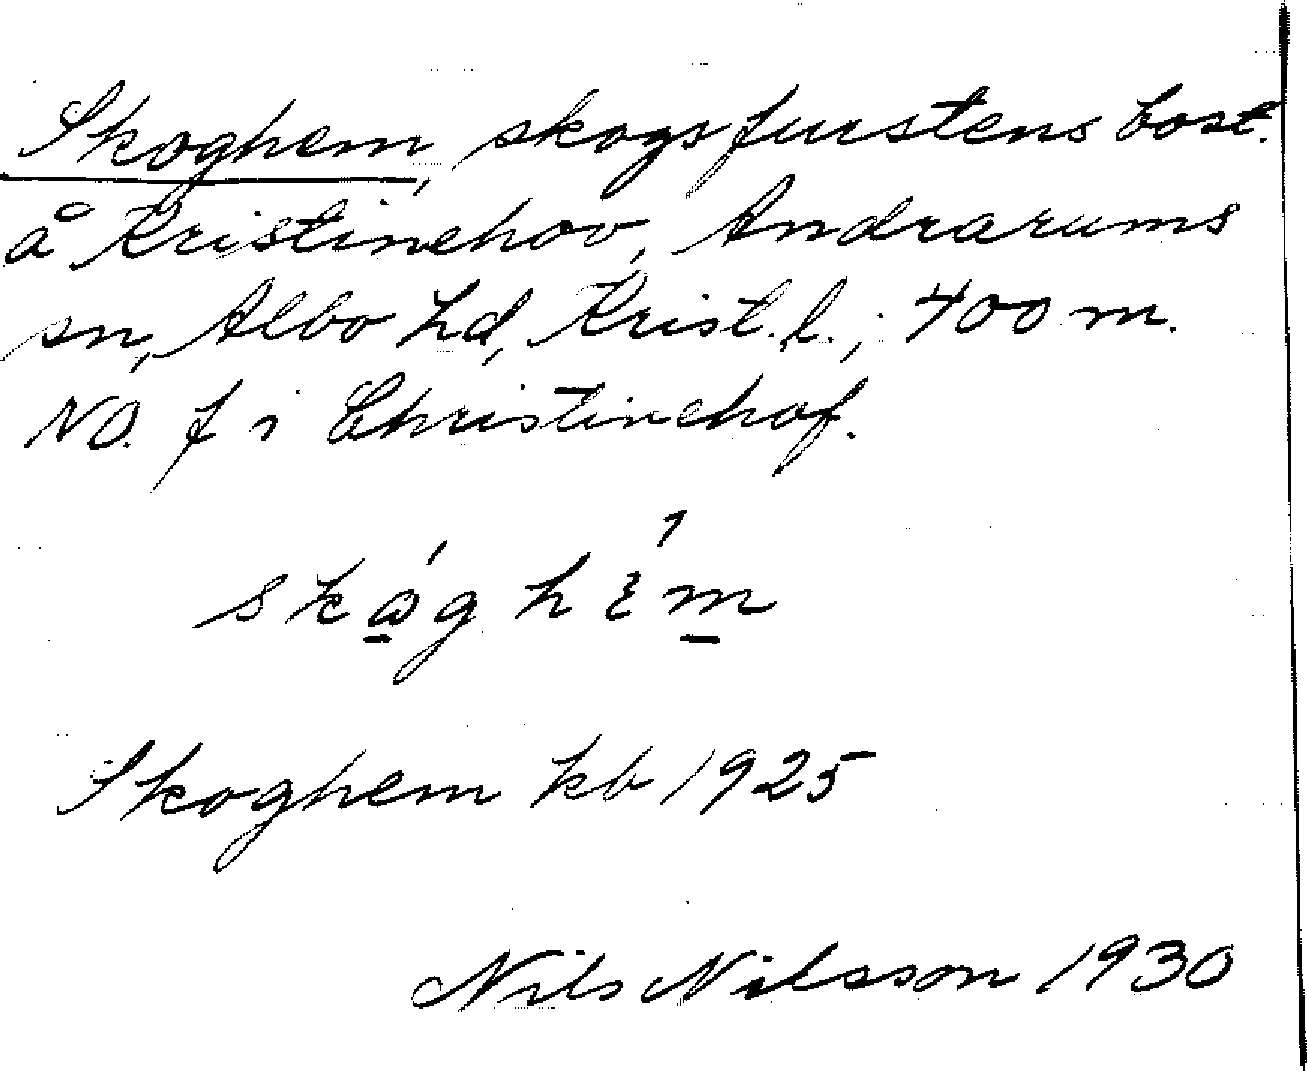 Skoghem, skogsfurstens bost.
å Kristinehov, Andrarums
sn, Albo hd, Krist. l.; 400 m.
NO. f i Christinehof.
Skoghem kb 1925
Nils Nilsson 1930